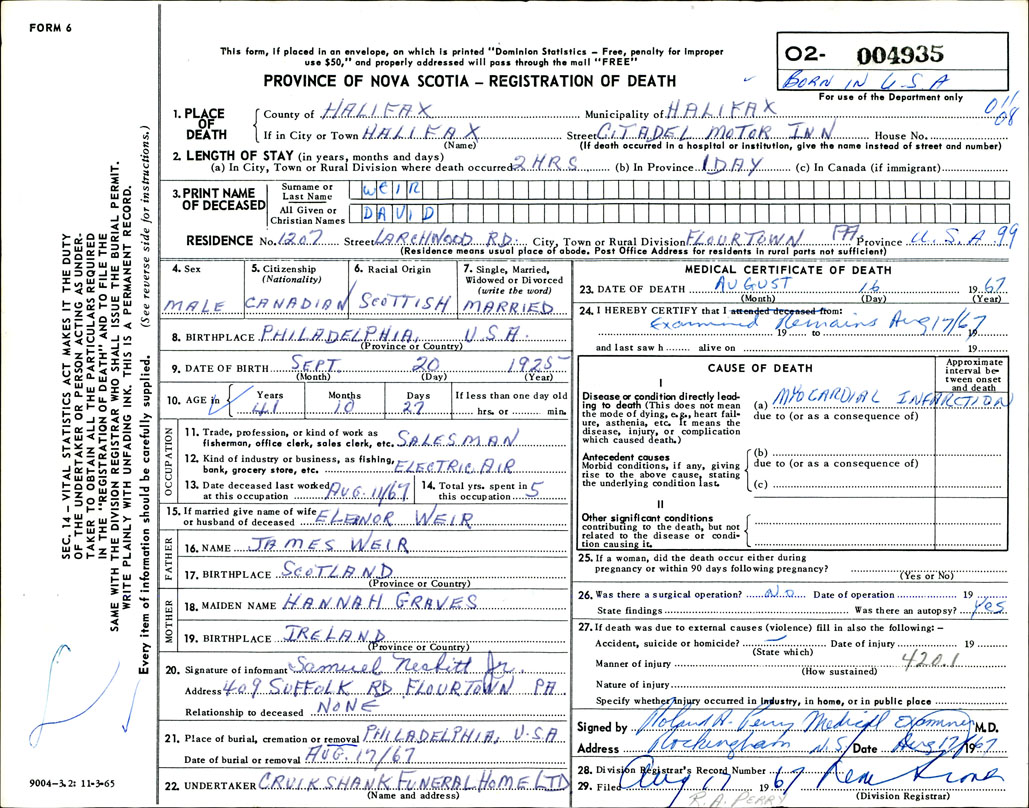 FORM 6
This form, if placed in an envelope, on which is printed "Dominion Statistics – Free, penalty for improper
use $50," and properly addressed will pass through the mail "FREE"
PROVINCE OF NOVA SCOTIA – REGISTRATION OF DEATH
02- 004935
BORN IN U.S.A
For use of the Department only
011
08
1. PLACE OF DEATH
County of HALIFAX Municipality of HALIFAX
If in City or Town HALIFAX Street CITADEL MOTOR INN House No.
(Name) (If death occurred in a hospital or institution, give the name instead of street and number)
2. LENGTH OF STAY (in years, months and days)
(a) In City, Town or Rural Division where death occurred 2 HRS (b) In Province 1 DAY (c) In Canada (if immigrant)
3. PRINT NAME OF DECEASED
Surname or Last Name WEIR
All Given or Christian Names DAVID
RESIDENCE No. 1207 Street LARCHWOOD RD. City, Town or Rural Division FLOURTOWN PA. Province U.S.A 99
(Residence means usual place of abode. Post Office Address for residents in rural parts not sufficient)
4. Sex MALE
5. Citizenship (Nationality) CANADIAN
6. Racial Origin SCOTTISH
7. Single, Married, Widowed or Divorced (write the word) MARRIED
8. BIRTHPLACE PHILADELPHIA, U.S.A.
(Province or Country)
9. DATE OF BIRTH SEPT. 20 1925
(Month) (Day) (Year)
10. AGE in Years Months Days If less than one day old
41 10 27 hrs. or min.
OCCUPATION
11. Trade, profession, or kind of work as
fisherman, office clerk, sales clerk, etc. SALESMAN
12. Kind of industry or business, as fishing,
bank, grocery store, etc. ELECTRIC AIR
13. Date deceased last worked
at this occupation AUG. 11/67
14. Total yrs. spent in
this occupation 5
15. If married give name of wife
or husband of deceased ELEANOR WEIR
FATHER
16. NAME JAMES WEIR
17. BIRTHPLACE SCOTLAND
(Province or Country)
MOTHER
18. MAIDEN NAME HANNAH GRAVES
19. BIRTHPLACE IRELAND
(Province or Country)
20. Signature of informant Samuel Nesbitt Jr.
Address 409 SUFFOLK RD FLOURTOWN PA
Relationship to deceased NONE
21. Place of burial, cremation or removal PHILADELPHIA, U.S.A
Date of burial or removal AUG. 17/67
22. UNDERTAKER CRUIKSHANK FUNERAL HOME LTD
(Name and address)
MEDICAL CERTIFICATE OF DEATH
23. DATE OF DEATH AUGUST 16 1967
(Month) (Day) (Year)
24. I HEREBY CERTIFY that I attended deceased from:
Examined Remains Aug 17/67
19 to 19
and last saw h alive on 19
CAUSE OF DEATH
Approximate interval between onset and death
I
Disease or condition directly leading to death (This does not mean the mode of dying, e.g., heart failure, asthenia, etc. It means the disease, injury, or complication which caused death.)
(a) MYOCARDIAL INFARCTION
due to (or as a consequence of)
Antecedent causes
Morbid conditions, if any, giving rise to the above cause, stating the underlying condition last.
(b)
due to (or as a consequence of)
(c)
II
Other significant conditions
contributing to the death, but not related to the disease or condition causing it.
25. If a woman, did the death occur either during
pregnancy or within 90 days following pregnancy?
(Yes or No)
26. Was there a surgical operation? No Date of operation 19
State findings Was there an autopsy? Yes
27. If death was due to external causes (violence) fill in also the following: –
Accident, suicide or homicide? – Date of injury 19
(State which)
Manner of injury 420.1
(How sustained)
Nature of injury
Specify whether injury occurred in industry, in home, or in public place
Signed by Roland A. Perry Medical Examiner M.D.
Address Rockingham N.S. Date Aug 17/1967
28. Division Registrar's Record Number
29. Filed Aug 17 1967
R. A. PERRY (Division Registrar)
SEC. 14 – VITAL STATISTICS ACT MAKES IT THE DUTY
OF THE UNDERTAKER OR PERSON ACTING AS UNDER-
TAKER TO OBTAIN ALL THE PARTICULARS REQUIRED
IN THE "REGISTRATION OF DEATH" AND TO FILE THE
SAME WITH THE DIVISION REGISTRAR WHO SHALL ISSUE THE BURIAL PERMIT.
WRITE PLAINLY WITH UNFADING INK. THIS IS A PERMANENT RECORD.
Every item of information should be carefully supplied. (See reverse side for instructions.)
9004–3.2: 11-3-65